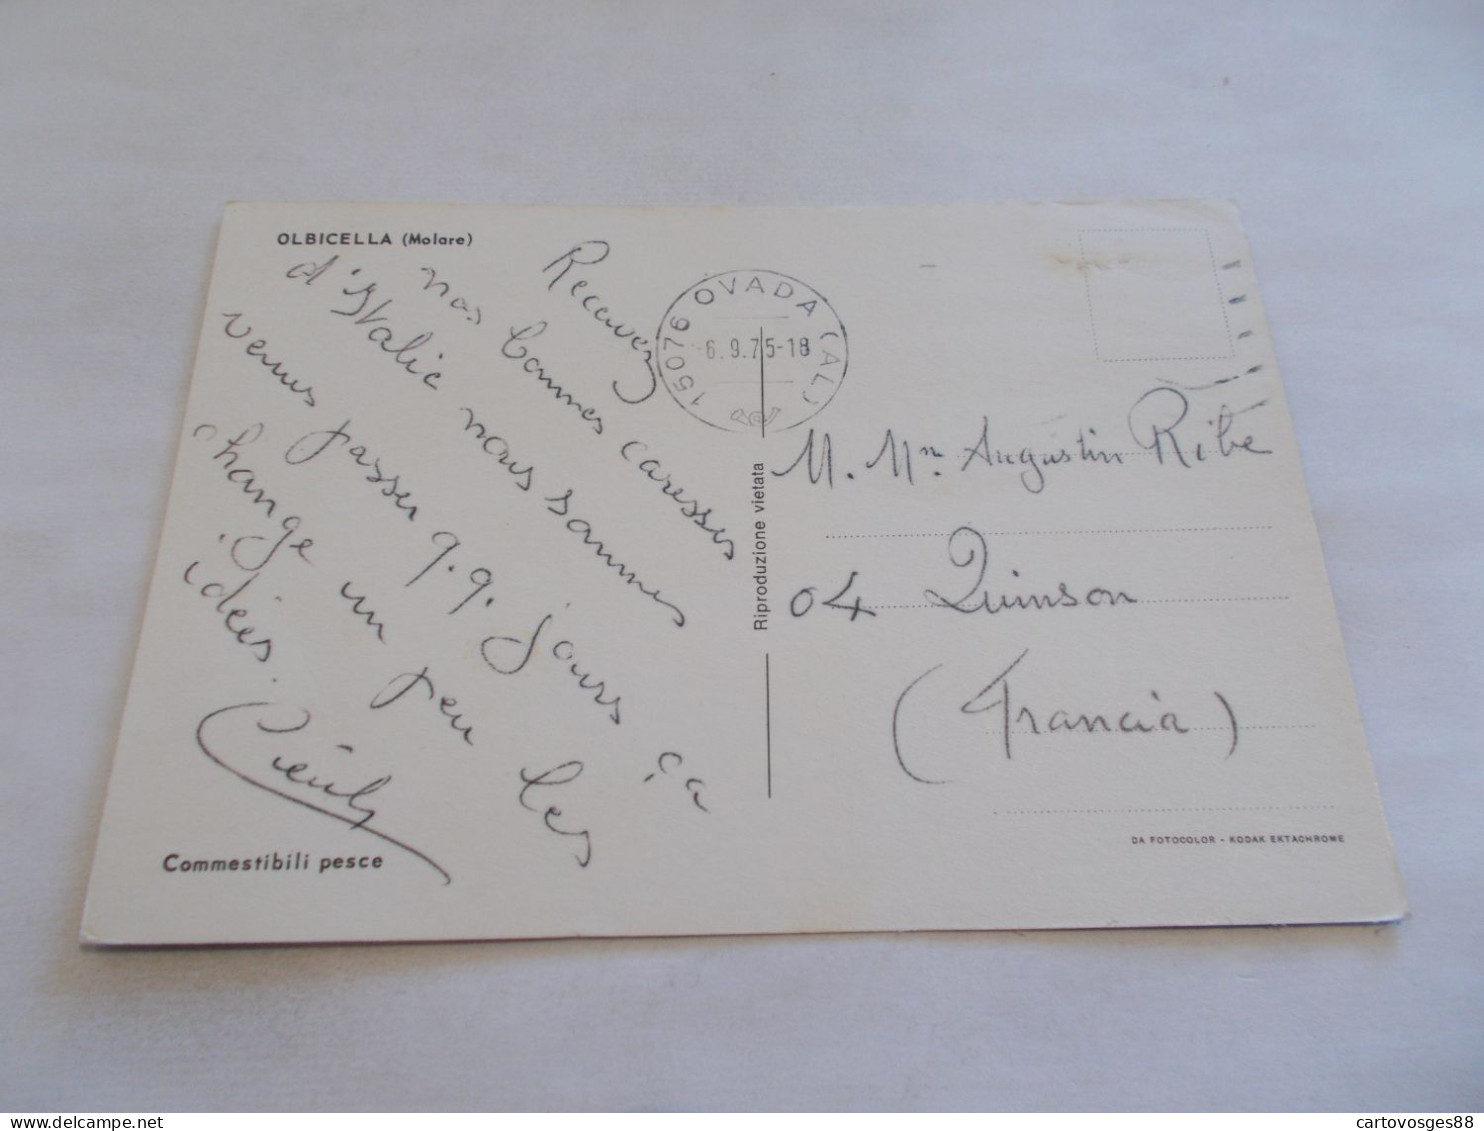 OLBICELLA (Molare)
Recevez
nos bonnes caresses
d'Italie nous sommes
venus passer q.q. jours ça
change un peu les
idées.
Commestibili pesce
15076 OVADA (AL)
6.9.75-18
Riproduzione vietata
M. Mn Augustin Ribe
04 Quinson
(Francia)
DA FOTOCOLOR - KODAK EKTACHROME
cartovosges88